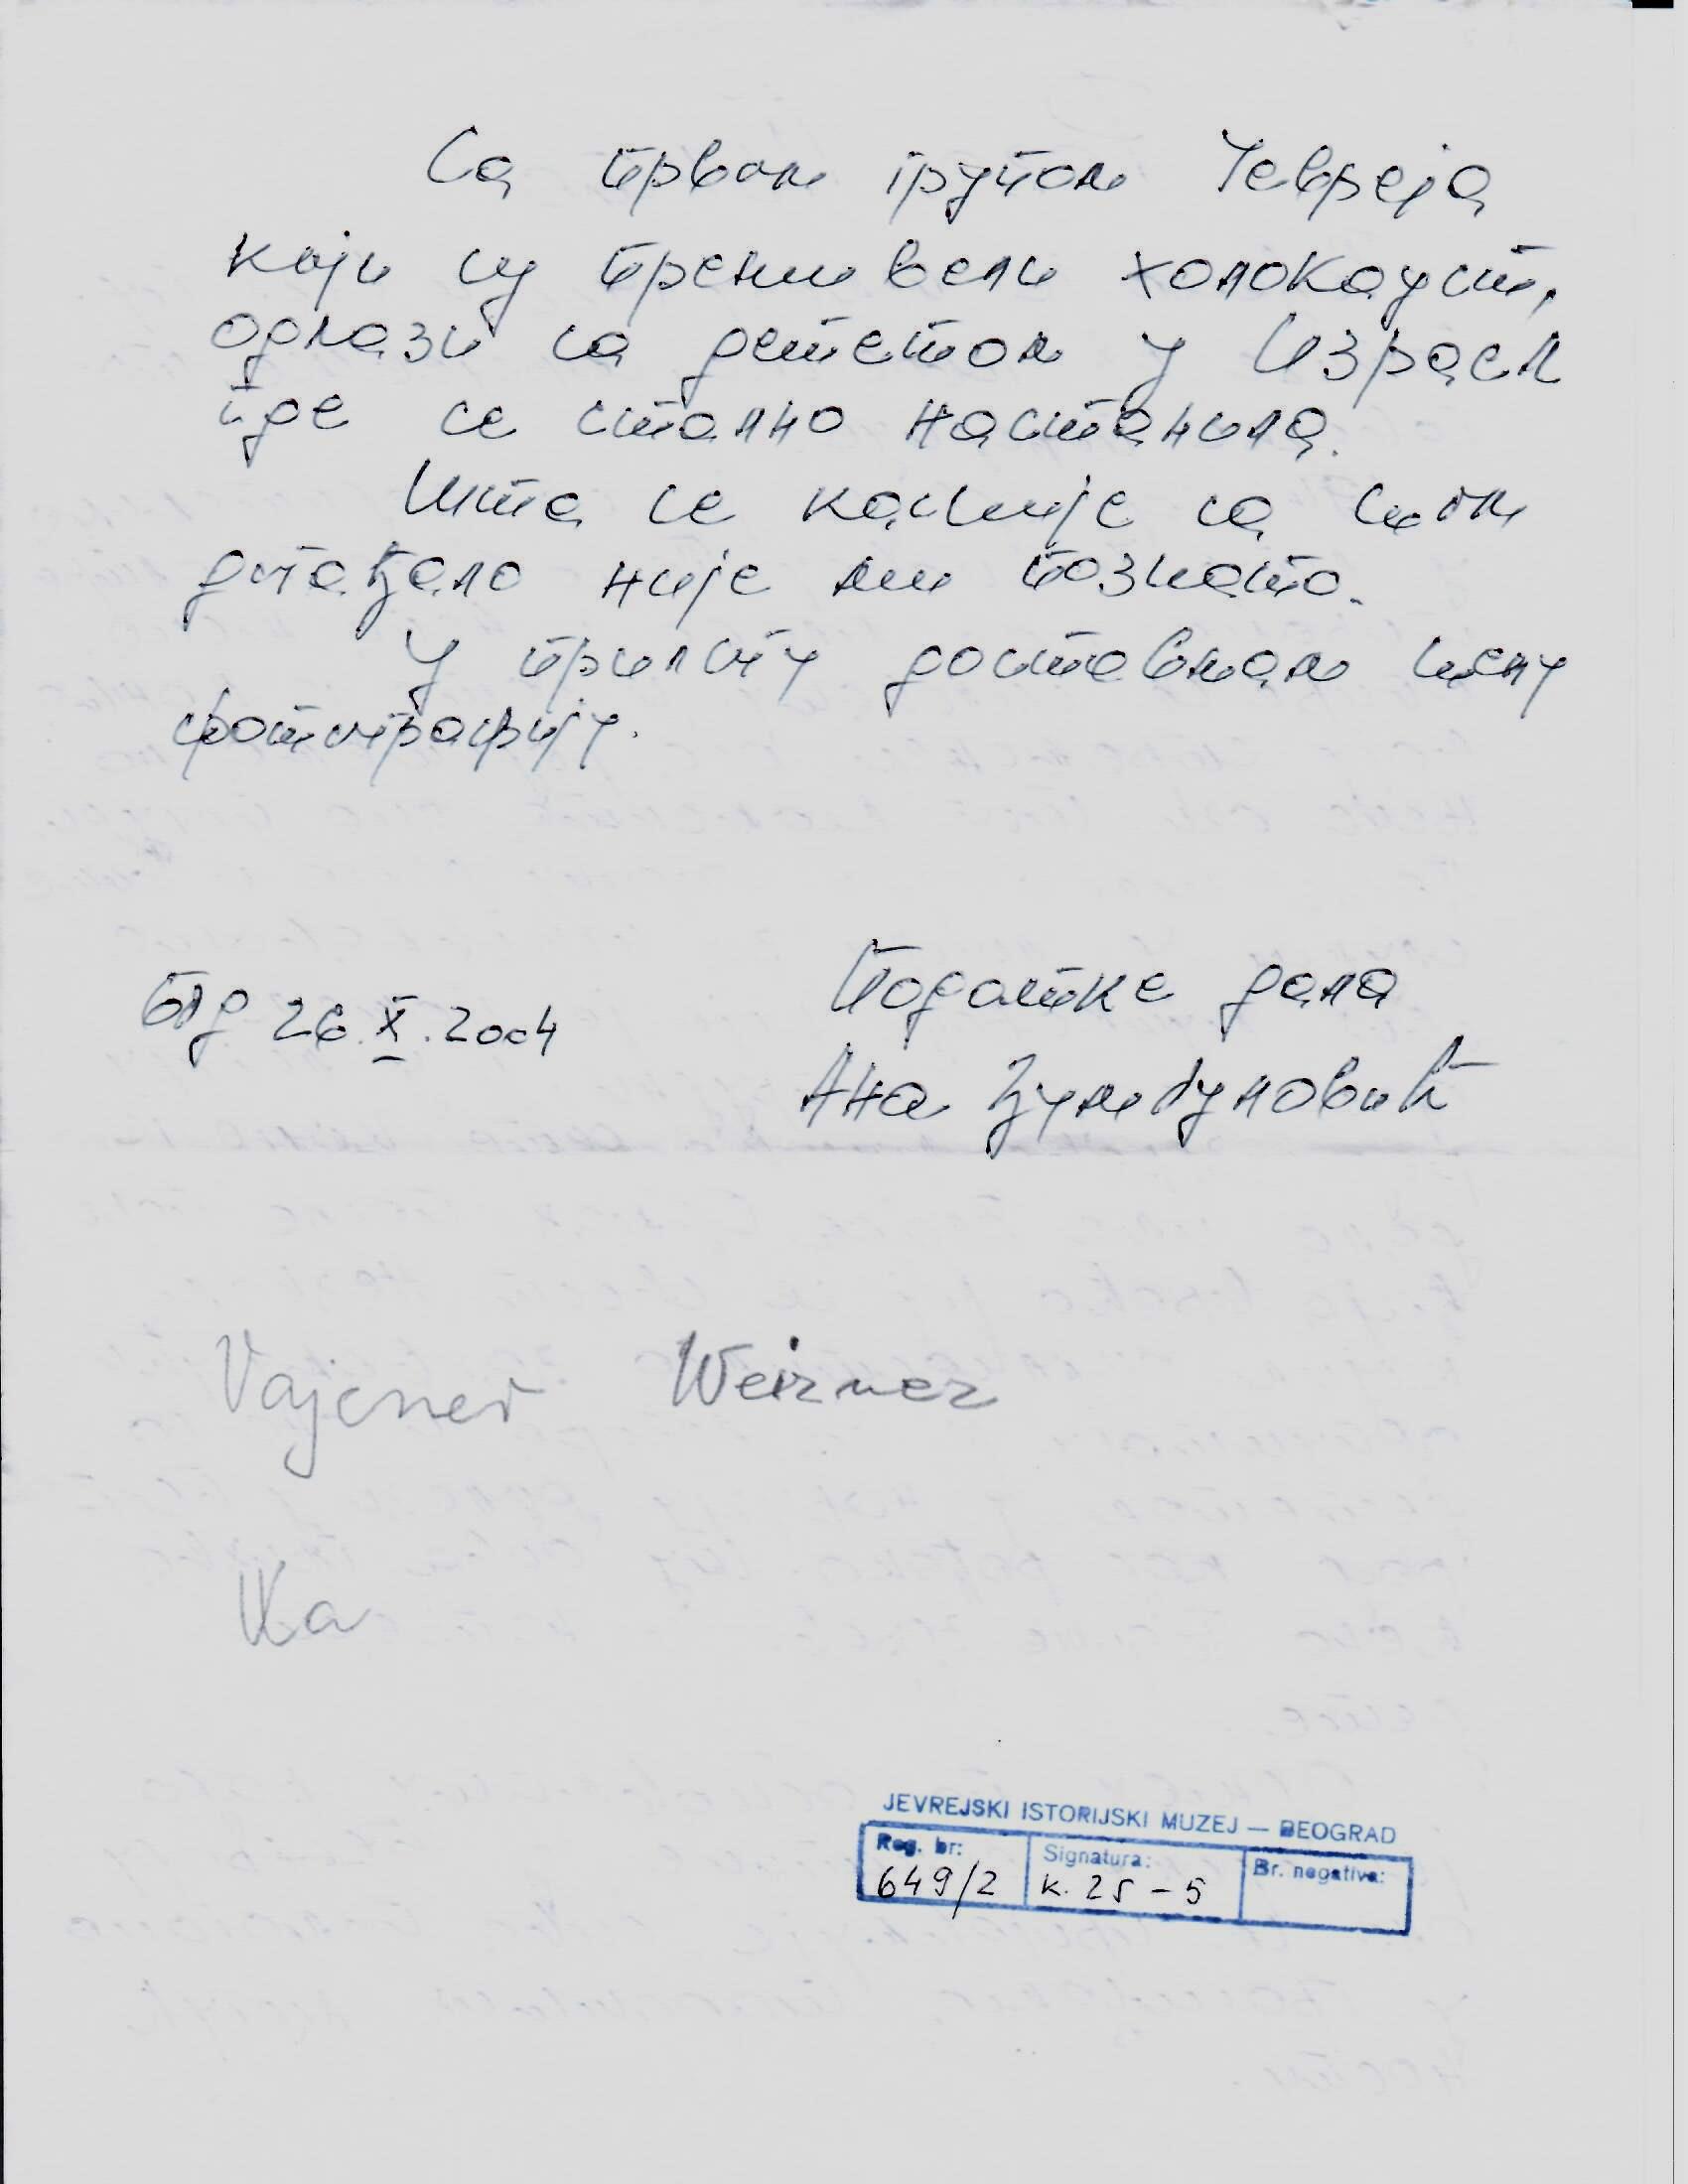 Са првом групом Јевреја
који су преживели холокауст,
одлази са дететом у Израел
где се стално настанила.
Шта се касније са њом
догађало није ми познато.
У прилогу достављам њену
фотографију.
Бгд 26.X.2004
Податке дала
Ана Џумбуловић
Vajcner Weizner
Ka
JEVREJSKI ISTORIJSKI MUZEJ — BEOGRAD
Reg. br: Signatura: Br. negativa:
649/2 K. 25 - 5